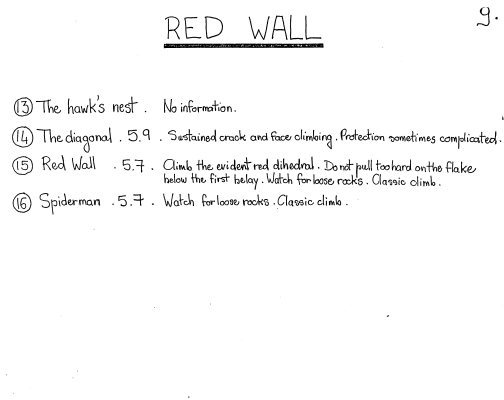 9.
RED WALL
⑬ The hawk's nest. No information.
⑭ The diagonal. 5.9. Sustained crack and face climbing. Protection sometimes complicated.
⑮ Red Wall. 5.7. Climb the evident red dihedral. Do not pull too hard on the flake
below the first belay. Watch for loose rocks. Classic climb.
⑯ Spiderman. 5.7. Watch for loose rocks. Classic climb.